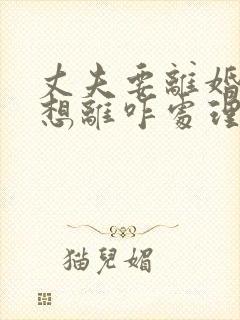 丈夫要離婚
想離咋處理
猫兒媚